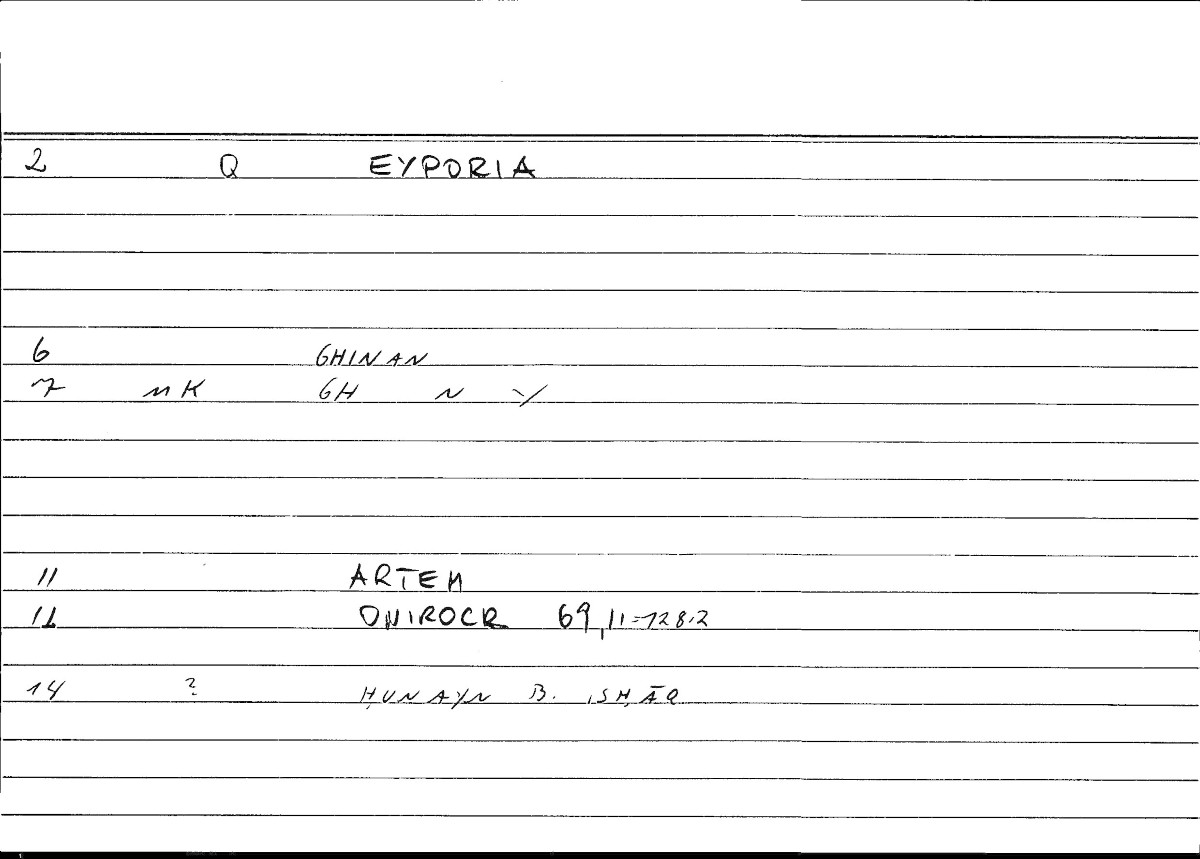 2 Q EYPORIA
6 GHINAN
7 MK GH N Y
11 ARTEM
12 ONIROCR 69,11=128.2
14 ? ḤUNAYN B. ISḤĀQ